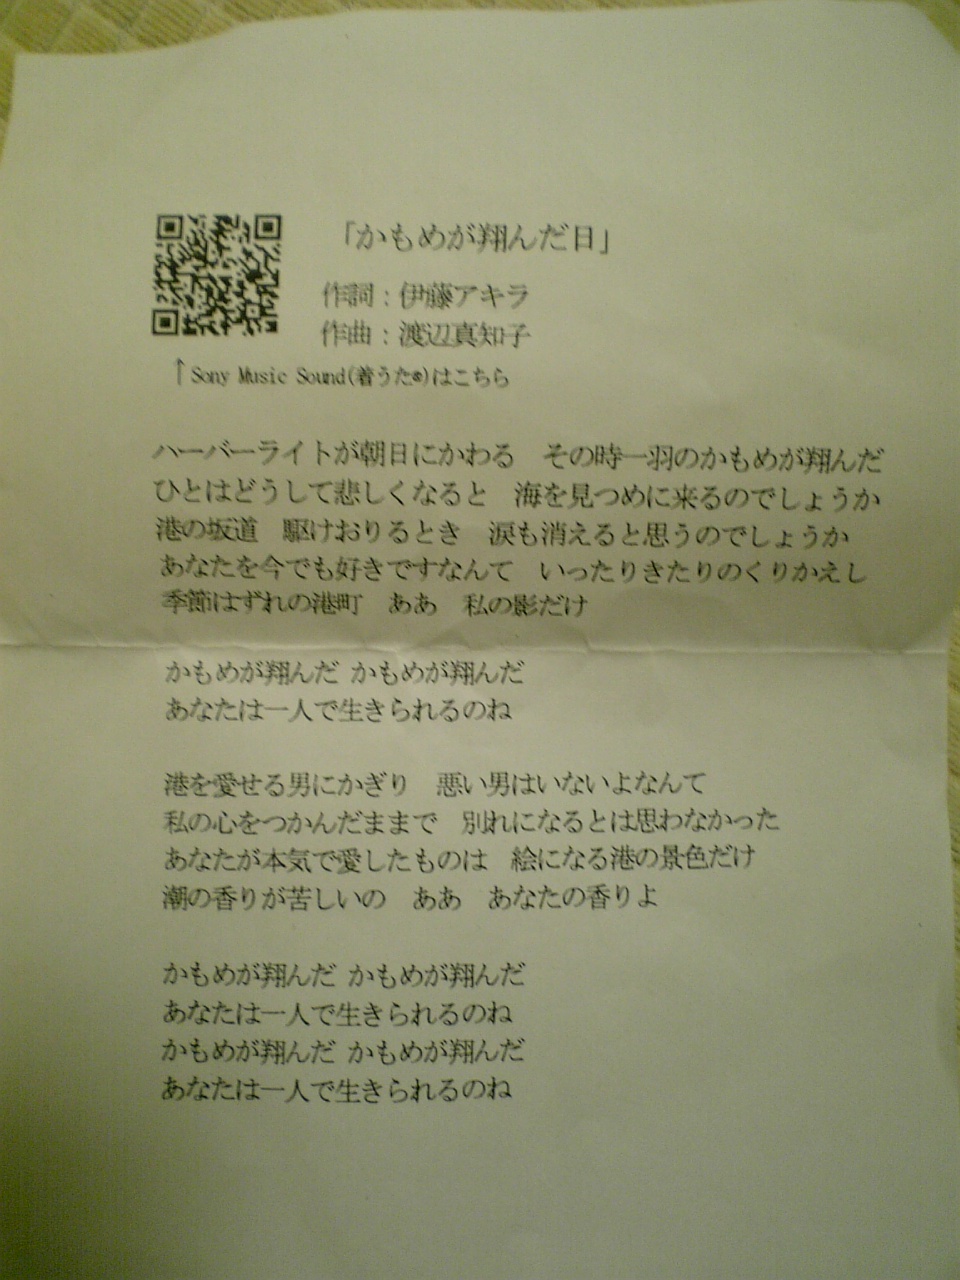 「かもめが翔んだ日」
作詞：伊藤アキラ
作曲：渡辺真知子
↑Sony Music Sound(着うた®)はこちら
ハーバーライトが朝日にかわる　その時一羽のかもめが翔んだ
ひとはどうして悲しくなると　海を見つめに来るのでしょうか
港の坂道　駆けおりるとき　涙も消えると思うのでしょうか
あなたを今でも好きですなんて　いったりきたりのくりかえし
季節はずれの港町　ああ　私の影だけ
かもめが翔んだ かもめが翔んだ
あなたは一人で生きられるのね
港を愛せる男にかぎり　悪い男はいないよなんて
私の心をつかんだままで　別れになるとは思わなかった
あなたが本気で愛したものは　絵になる港の景色だけ
潮の香りが苦しいの　ああ　あなたの香りよ
かもめが翔んだ かもめが翔んだ
あなたは一人で生きられるのね
かもめが翔んだ かもめが翔んだ
あなたは一人で生きられるのね